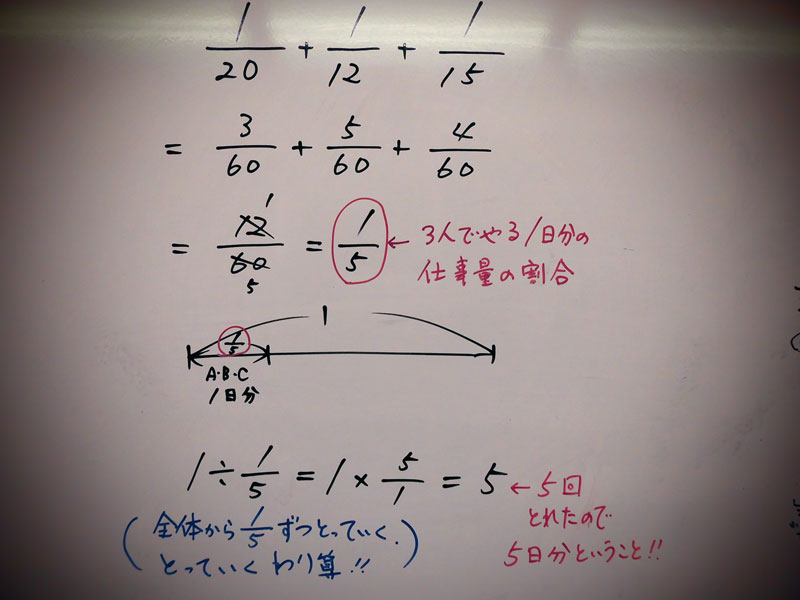 1/20 + 1/12 + 1/15
= 3/60 + 5/60 + 4/60
= 12/60 1 5 = 1/5 ← 3人でやる1日分の
仕事量の割合
1
1/5
A・B・C
1日分
1 ÷ 1/5 = 1 × 5/1 = 5 ← 5回
とれたので
5日分ということ!!
(全体から1/5ずつとっていく.
とっていくわり算!!)